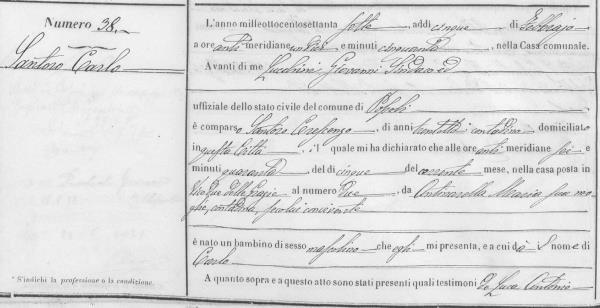 Numero 38.
Santoro Carlo
* S'indichi la professione o la condizione.
L'anno milleottocentosettanta sette, addi cinque di Febbrajo
a ore anti meridiane undici e minuti cinquanta, nella Casa comunale.
Avanti di me Giovanni Sindaco ed
uffiziale dello stato civile del comune di Popoli
è comparso Santoro Crescenzo, di anni contadino domiciliato
in questa Città, il quale mi ha dichiarato che alle ore anti meridiane sei e
minuti quaranta, del dì cinque del corrente mese, nella casa posta in
delle Grazie al numero due, da Maria sua mo
glie, contadina, seco lui convivente
è nato un bambino di sesso mascolino che egli mi presenta, e a cui dà il nome di
Carlo
A quanto sopra e a questo atto sono stati presenti quali testimoni de Luca Antonio